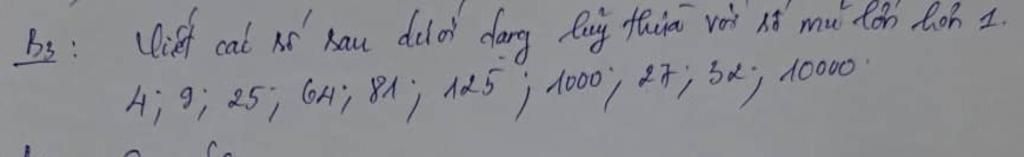 B3: Viết các số sau dưới dạng luỹ thừa với số mũ lớn hơn 1.
4; 9; 25; 64; 81; 125; 1000; 27; 32; 10000.